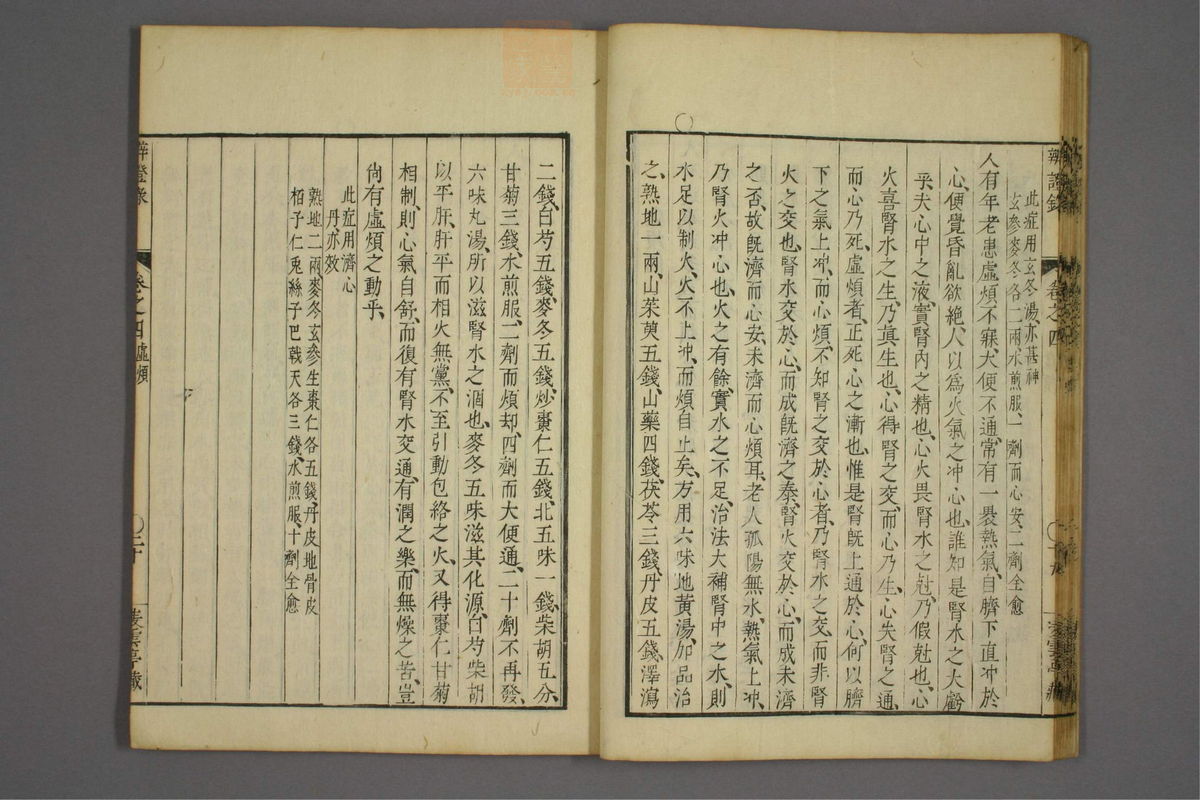 辨證錄 卷之四
此症用玄冬湯、亦甚神
玄參麥冬各二兩水煎服、一劑而心安、二劑全愈
人有年老患虛煩不寐、大便不通、常有一裊熱氣、自臍下直冲於
心、便覺昏亂欲絕、人以爲火氣之冲心也、誰知是腎水之大虧
乎、夫心中之液、實腎內之精也、心火畏腎水之尅、乃假尅也、心
火喜腎水之生、乃眞生也、心得腎之交、而心乃生、心失腎之通、
而心乃死、虛煩者、正死心之漸也、惟是腎旣上通於心、何以臍
下之氣上冲、而心煩、不知腎之交於心者、乃腎水之交、而非腎
火之交也、腎水交於心、而成旣濟之泰、腎火交於心、而成未濟
之否、故旣濟而心安、未濟而心煩耳、老人孤陽無水、熱氣上冲、
乃腎火冲心也、火之有餘、實水之不足、治法大補腎中之水、則
水足以制火、火不上冲、而煩自止矣、方用六味地黃湯、加品治
之、熟地一兩、山茱萸五錢、山藥四錢、茯苓三錢、丹皮五錢、澤瀉
二錢、白芍五錢、麥冬五錢、炒棗仁五錢、北五味一錢、柴胡五分、
甘菊三錢、水煎服、二劑而煩却、四劑而大便通、二十劑不再發、
六味丸湯、所以滋腎水之涸也、麥冬五味滋其化源、白芍柴胡
以平肝、肝平而相火無黨、不至引動包絡之火、又得棗仁甘菊
相制、則心氣自舒、而復有腎水交通、有潤之樂、而無燥之苦、豈
尙有虛煩之動乎、
此症用濟心
丹亦效
熟地二兩麥冬玄參生棗仁各五錢、丹皮地骨皮
柏子仁兎絲子巴戟天各三錢、水煎服、十劑全愈
辨證錄 卷之四虛煩 三十